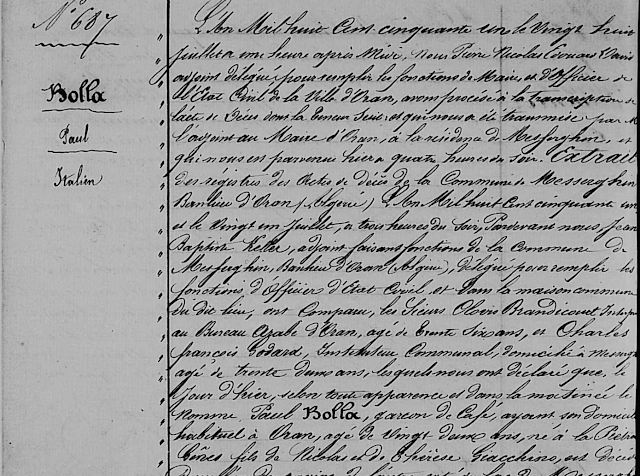 N° 687
Bolla
Paul
Italien
L'An Mil huit Cent cinquante un le vingt huit
juillet à une heure après Midi, Nous Pierre Nicolas Edouard
adjoint délégué pour remplir les fonctions de Maire et d'Officier de
l'Etat Civil de la Ville d'Oran, avons procédé à la transcription de
l'acte de Décès dont la teneur suit et qui nous a été transmise par M
l'adjoint au Maire d'Oran, à la résidence de Messerghin, et
qui nous est parvenue hier à quatre heures du soir. Extrait
des régistres des Actes de décès de la Commune de Messerghin
Banlieu d'Oran (Algérie) L'An Mil huit Cent cinquante un
et le Vingt un Juillet, à trois heures du Soir, Pardevant nous Jean
Baptiste Keller, adjoint faisant fonctions de la Commune de
Messerghin, Banlieu d'Oran (Algérie), délégué pour remplir les
fonctions d'Officier d'Etat Civil et dans la maison commune
du dit lieu, ont Comparu, les Sieurs Clovis Brandicourt
au Bureau Arabe d'Oran, agé de trente Six ans, et Charles
françois Godard, Instituteur Communal, domicilié à
agé de trente deux ans, lesquels nous ont déclaré que, le
Jour d'hier, selon toute apparence et dans la matinée le
Nommé Paul Bolla, garçon de Café, ayant son domicile
habituel à Oran, agé de Vingt deux ans, né à la
fils de Nicolas et de Thérèse Giacchino, est décédé